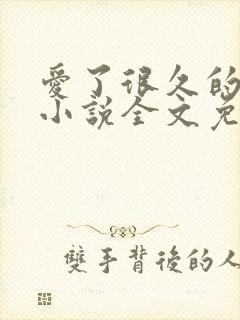 愛了很久的
小說全文免
雙手背後的人